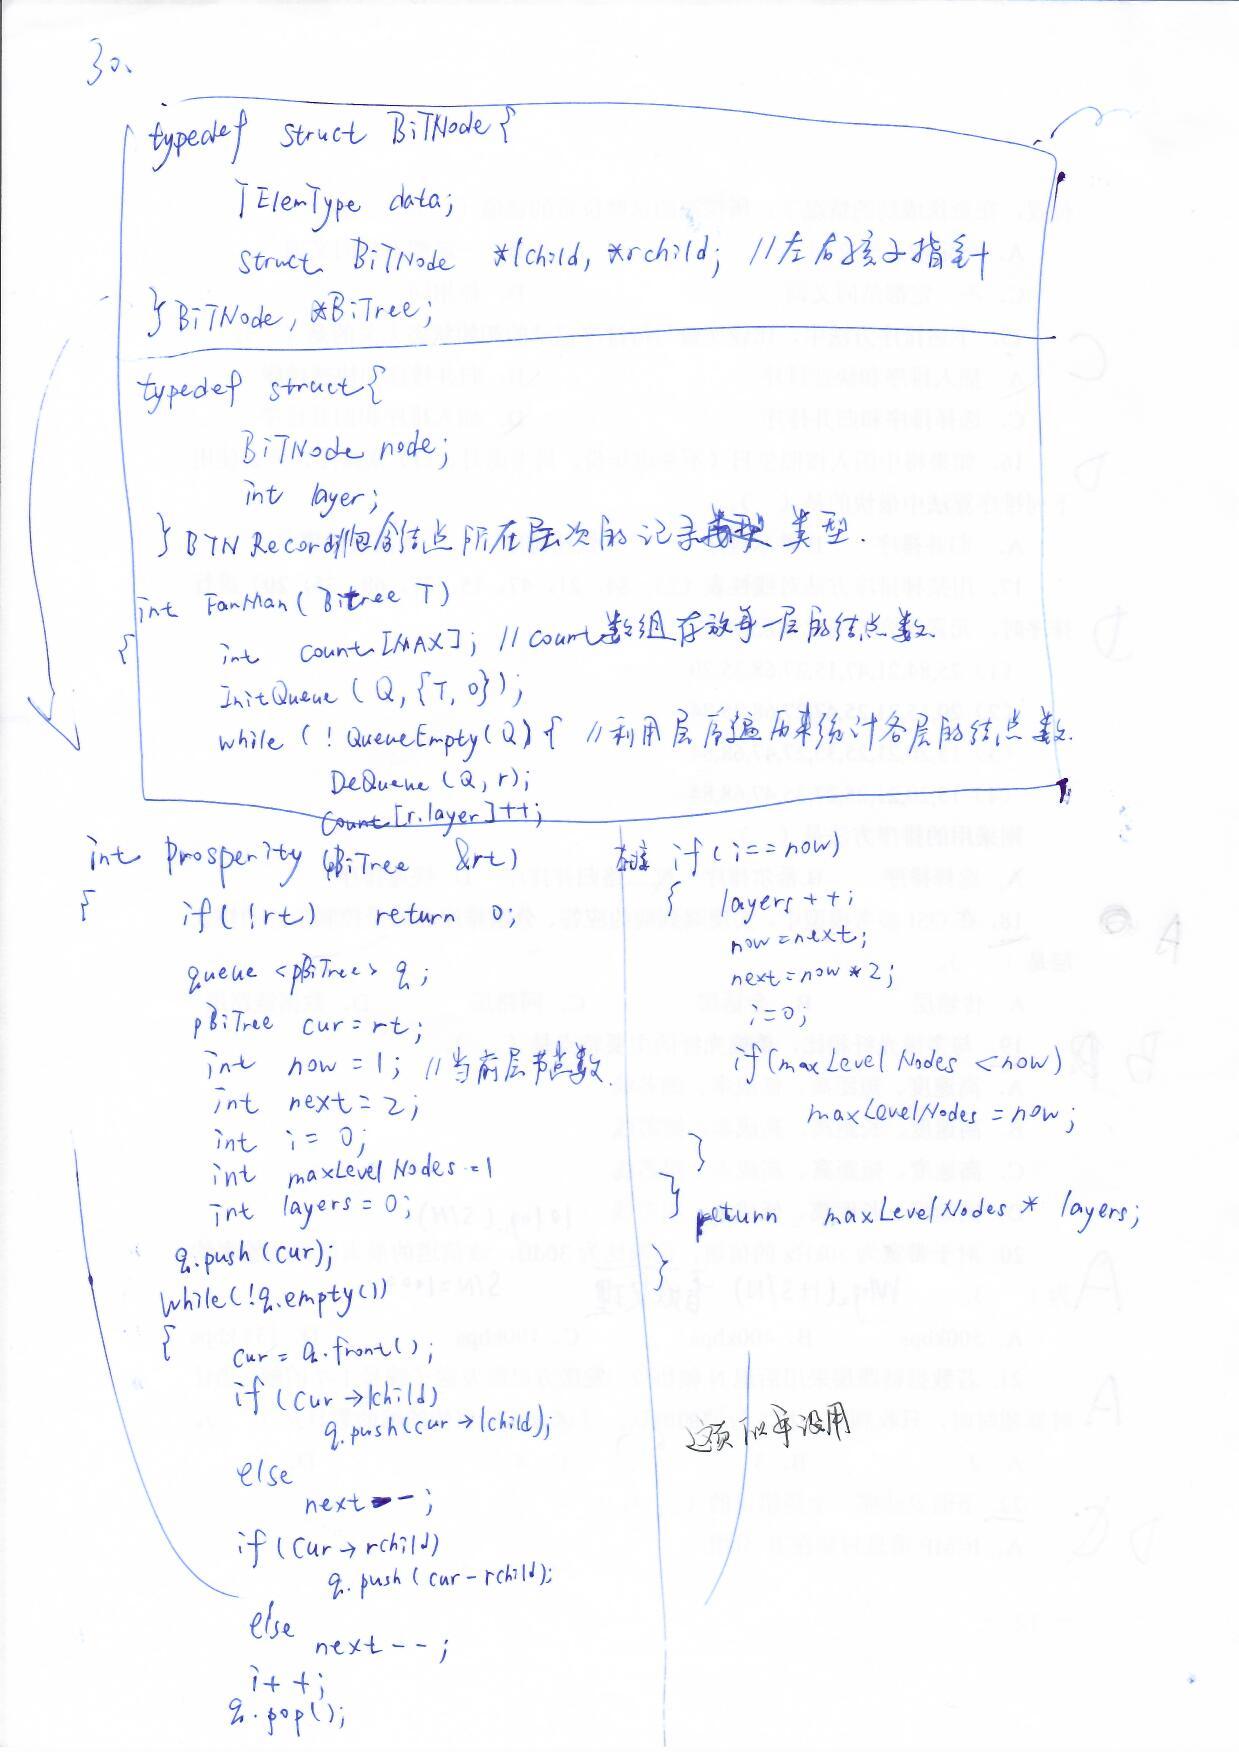 30、
typedef struct BiTNode {
TElemType data;
struct BiTNode *lchild, *rchild; //左右孩子指针
} BiTNode, *BiTree;
typedef struct {
BiTNode node;
int layer;
} BTNRecord 包含结点所在层次的记录 类型.
int FanMan( Bitree T)
{ int count[MAX]; //count数组存放每一层的结点数.
InitQueue ( Q, {T, 0});
while ( ! QueueEmpty(Q) { //利用层序遍历来统计各层的结点数.
DeQueue (Q, r);
Count [r.layer]++;
int Prosperity (pBiTree &rt)
{ if(!rt) return 0;
queue <pBiTree> q;
pBiTree cur=rt;
int now=1; //当前层节点数.
int next=2;
int i=0;
int maxLevelNodes=1
int layers=0;
q.push(cur);
while(!q.empty())
{ cur=q.front();
if(cur→lchild)
q.push(cur→lchild);
else
next--;
if(cur→rchild)
q.push(cur-rchild);
else
next--;
i++;
q.pop();
if(i==now)
{ layers++;
now=next;
next=now*2;
i=0;
if(maxLevelNodes<now)
maxLevelNodes=now;
}
} return maxLevelNodes* layers;
}
这页似乎没用